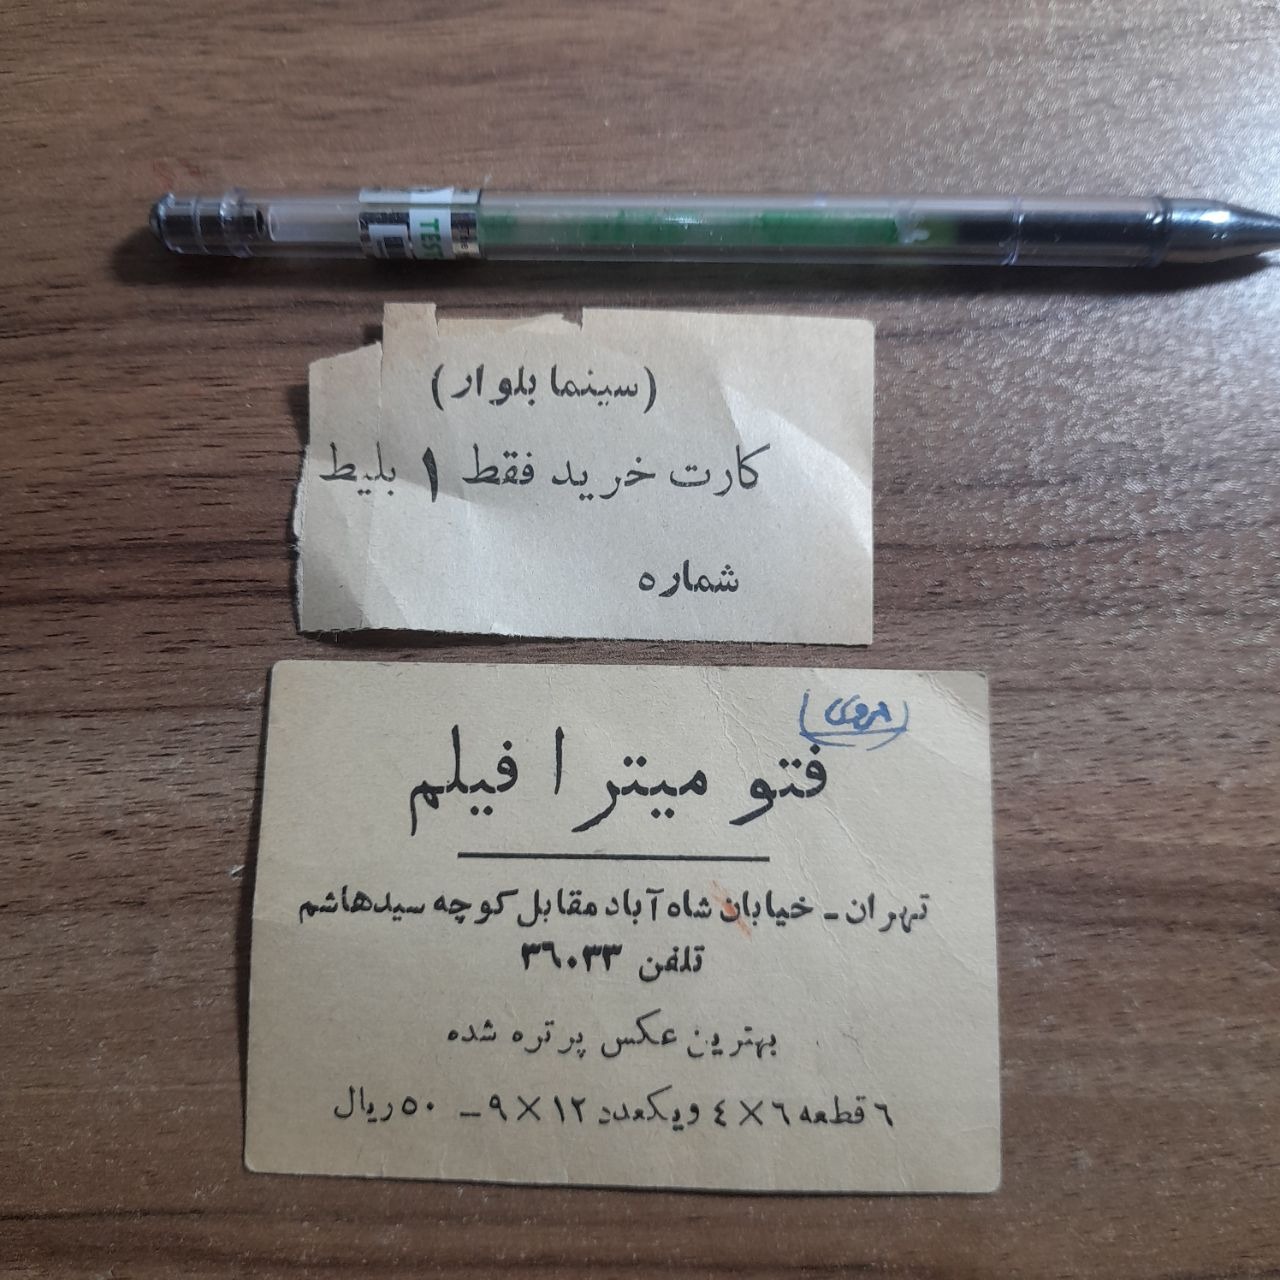 TEST
(سینما بلوار)
کارت خرید فقط ۱ بلیط
شماره
فتو میترا فیلم
تهران - خیابان شاه آباد مقابل کوچه سیدهاشم
تلفن ۳۶۰۳۳
بهترین عکس پرتره شده
۶ قطعه ۶×۴ ویکعدد ۱۲×۹ - ۵۰ ریال